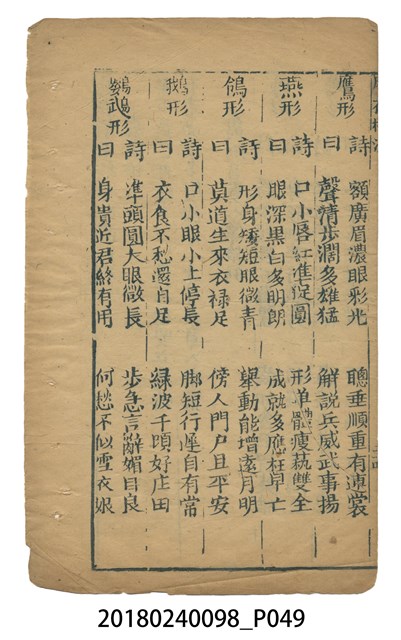 鷹形
詩曰
額廣眉濃眼彩光
聰垂順重有
裳
聲清步濶多雄猛
解説兵威武事揚
燕形
詩曰
口小唇紅準促圓
形单體瘦藝雙全
眼深黒白多明朗
成就多應枉早亡
鴿形
詩曰
形身矮短眼微青
舉動能增遂月明
莫道生來衣禄足
傍人門户且平安
鵝形
詩曰
口小眼小上停長
脚短行遲自有常
衣食不愁還自足
緑波千頃好庄田
鸚鵡形
詩曰
準頭圓大眼微長
步急言辭媚自良
身貴近君終有用
何愁不似雪衣娘
20180240098_P049